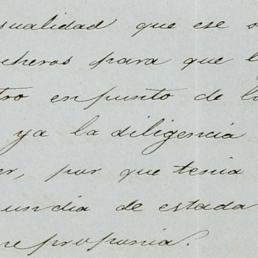 sualidad que ese s
cheros para que l
tro en punto de la
ya la diligencia
er, por que tenia
un dia de estada
me proponia.